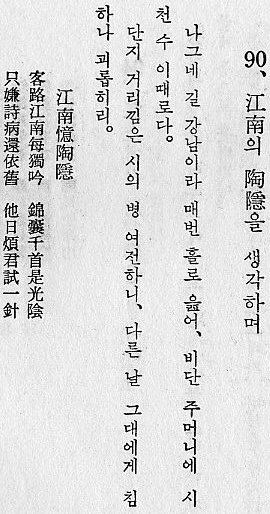 90、江南의 陶隱을 생각하며
나그네 길 강남이라 매번 홀로 읊어、비단 주머니에 시
천 수 이때로다。
단지 거리낌은 시의 병 여전하니、다른 날 그대에게 침
하나 괴롭히리。
江南憶陶隱
客路江南每獨吟 錦囊千首是光陰
只嫌詩病還依舊 他日煩君試一針